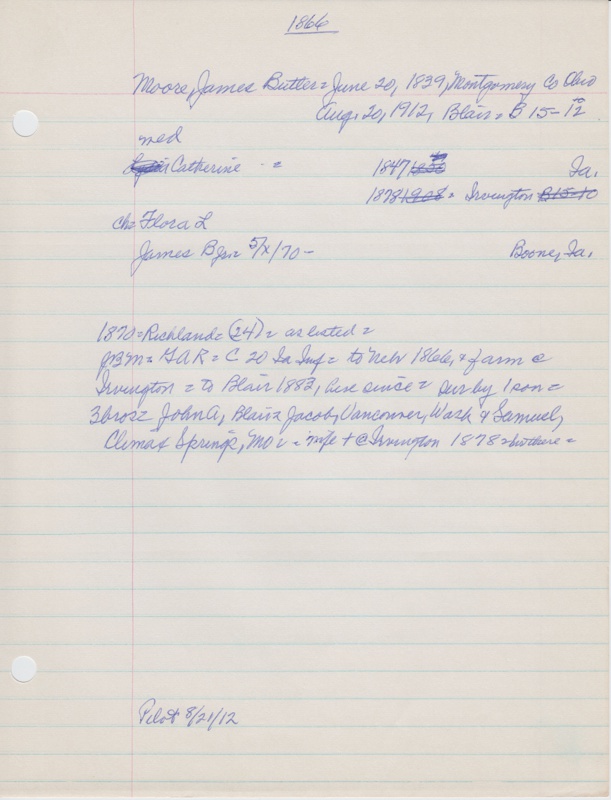 1866
Moore, James Butler = June 20, 1839, Montgomery Co Ohio
Aug. 20, 1912, Blair = B 15-12
med
Lydia Catherine - = 1847 1850 Ia.
1878 1908 = Irvington B15-10
Ch = Flora L
James B Jr = 5/x/70 - Boone, Ia.
1870 = Richland = (24) = as listed =
JBM = GAR = C 20 Ia Inf = to Nebr 1866, & farm @
Irvington = to Blair 1883, here since = sur by 1 son =
3 bros = John A, Blair = Jacob, Vancouver, Wash & Samuel,
Climax Springs, Mo = wife + @ Irvington 1878 =
Pilot 8/21/12